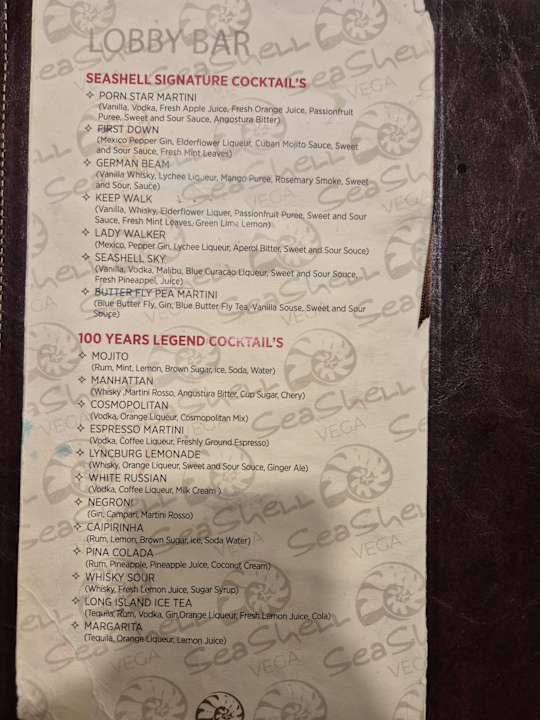 LOBBY BAR
SEASHELL SIGNATURE COCKTAIL'S
PORN STAR MARTINI
(Vanilla, Vodka, Fresh Apple Juice, Fresh Orange Juice, Passionfruit
Puree, Sweet and Sour Sauce, Angostura Bitter)
FIRST DOWN
(Mexico Pepper Gin, Elderflower Liqueur, Cuban Mojito Sauce, Sweet
and Sour Sauce, Fresh Mint Leaves)
GERMAN BEAM
(Vanilla Whisky, Lychee Liqueur, Mango Puree, Rosemary Smoke, Sweet
and Sour, Sauce)
KEEP WALK
(Vanilla, Whisky, Elderflower Liquer, Passionfruit Puree, Sweet and Sour
Sauce, Fresh Mint Leaves, Green Lime Lemon)
LADY WALKER
(Mexico, Pepper Gin, Lychee Liqueur, Aperol Bitter, Sweet and Sour Souce)
SEASHELL SKY
(Vanilla, Vodka, Malibu, Blue Curaçao Liqueur, Sweet and Sour Souce,
Fresh Pineappel, Juice)
BUTTER FLY PEA MARTINI
(Blue Butter Fly, Gin, Blue Butter Fly Tea, Vanilla Souse, Sweet and Sour
Souce)
100 YEARS LEGEND COCKTAIL'S
MOJITO
(Rum, Mint, Lemon, Brown Sugar, Ice, Soda, Water)
MANHATTAN
(Whisky ,Martini Rosso, Angustura Bitter, Cup Sugar, Chery)
COSMOPOLITAN
(Vodka, Orange Liqueur, Cosmopolitan Mix)
ESPRESSO MARTINI
(Vodka, Coffee Liqueur, Freshly Ground Espresso)
LYNCBURG LEMONADE
(Whisky, Orange Liqueur, Sweet and Sour Souce, Ginger Ale)
WHITE RUSSIAN
(Vodka, Coffee Liqueur, Milk Cream )
NEGRONI
(Gin, Campari, Martini Rosso)
CAIPIRINHA
(Rum, Lemon, Brown Sugar, Ice, Soda Water)
PINA COLADA
(Rum, Pineapple, Pineapple Juice, Coconut Cream)
WHISKY SOUR
(Whisky, Fresh Lemon Juice, Sugar Syrup)
LONG ISLAND ICE TEA
(Tequila, Rum, Vodka, Gin,Orange Liqueur, Fresh Lemon Juice, Cola)
MARGARITA
(Tequila, Orange Liqueur, Lemon Juice)